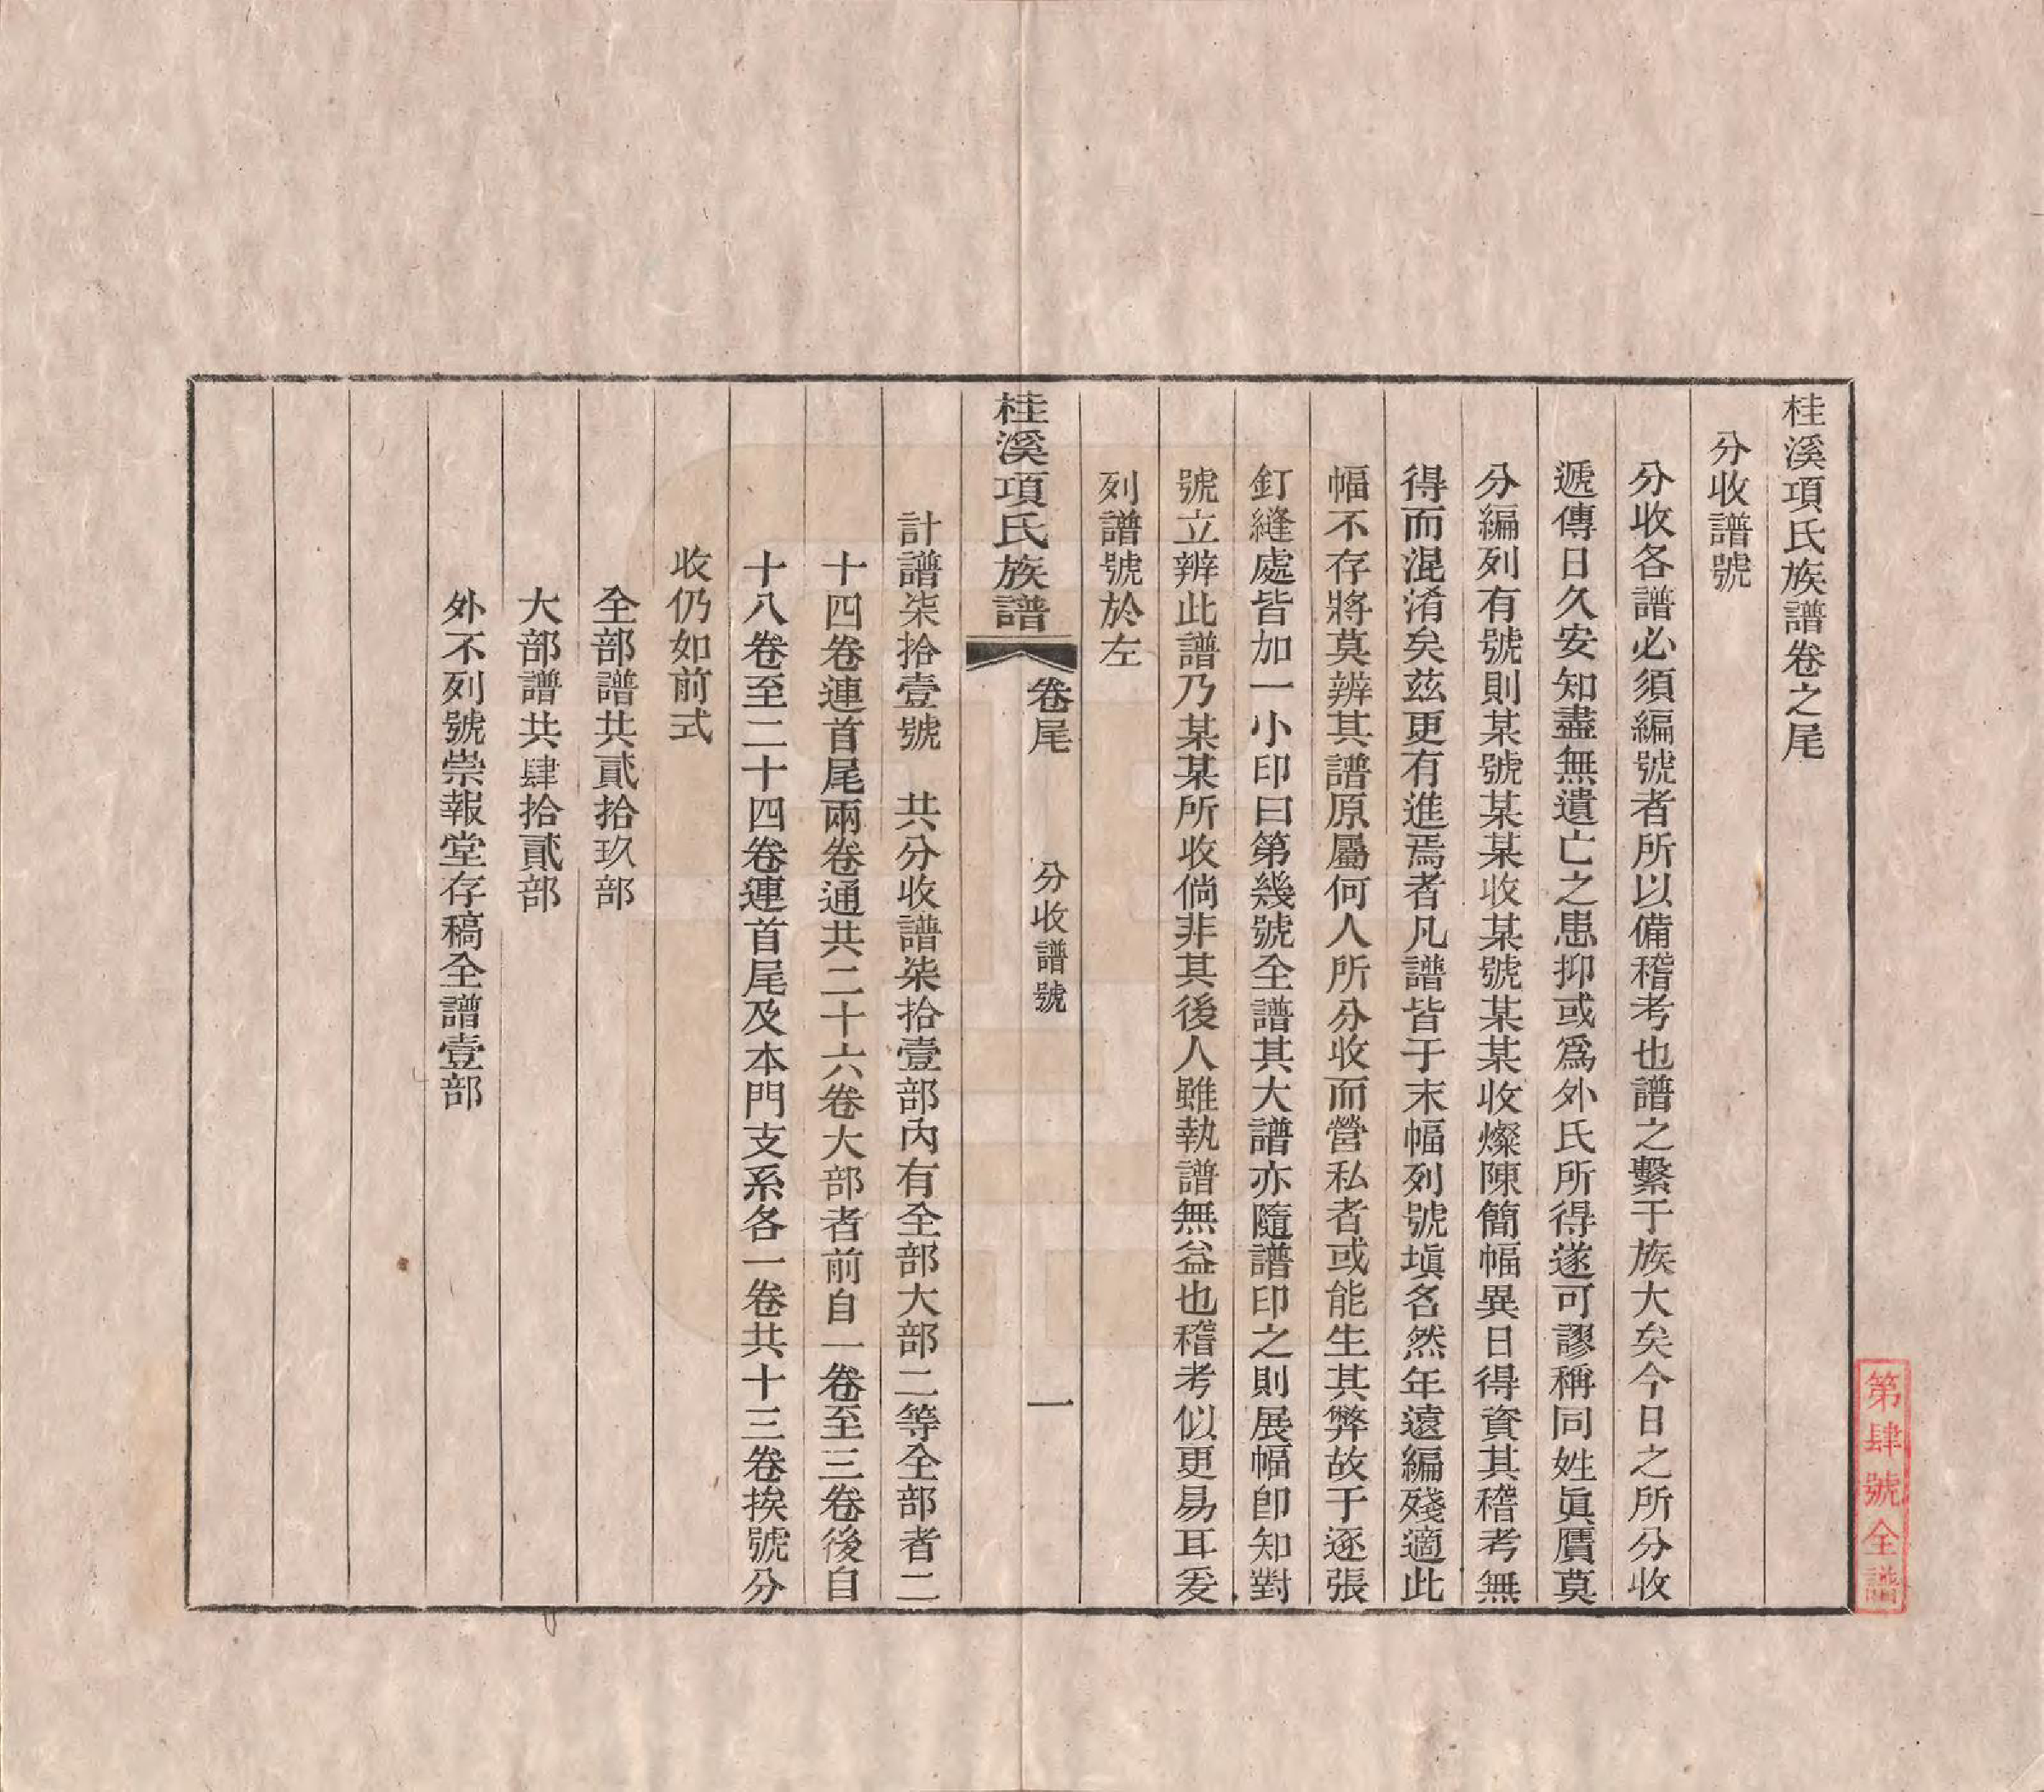 桂溪項氏族譜卷之尾
分收譜號
分收各譜必須編號者所以備稽考也譜之繫于族大矣今日之所分收
遞傳日久安知盡無遺亡之患抑或爲外氏所得遂可謬稱同姓眞贋莫
分編列有號則某號某某收某號某某收燦陳簡幅異日得資其稽考無
得而混淆矣茲更有進焉者凡譜皆于末幅列號塡名然年遠編殘適此
幅不存將莫辨其譜原屬何人所分收而營私者或能生其弊故于逐張
釘縫處皆加一小印曰第幾號全譜其大譜亦隨譜印之則展幅卽知對
號立辨此譜乃某某所收倘非其後人雖執譜無益也稽考似更易耳爰
列譜號於左
桂溪項氏族譜 卷尾 分收譜號 一
計譜柒拾壹號 共分收譜柒拾壹部內有全部大部二等全部者二
十四卷連首尾兩卷通共二十六卷大部者前自一卷至三卷後自
十八卷至二十四卷連首尾及本門支系各一卷共十三卷挨號分
收仍如前式
全部譜共貳拾玖部
大部譜共肆拾貳部
外不列號崇報堂存稿全譜壹部
第肆號全譜